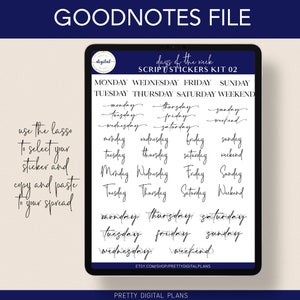 GOODNOTES FILE
digital
days of the week
SCRIPT STICKERS KIT 02
MONDAY WEDNESDAY FRIDAY SUNDAY
TUESDAY THURSDAY SATURDAY WEEKEND
monday thursday sunday
tuesday friday weekend
wednesday saturday
monday wednesday friday sunday
tuesday thursday saturday weekend
Monday Wednesday Friday Sunday
Tuesday Thursday Saturday Weekend
monday thursday saturday
tuesday friday sunday
wednesday weekend
ETSY.COM/SHOP/PRETTYDIGITALPLANS
use the lasso
to select your
sticker and
copy and paste
to your spread
PRETTY DIGITAL PLANS